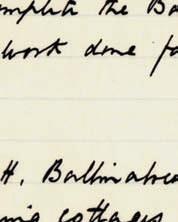 mplete the Ba
work done fo
H. Ballinabra
ing cottages